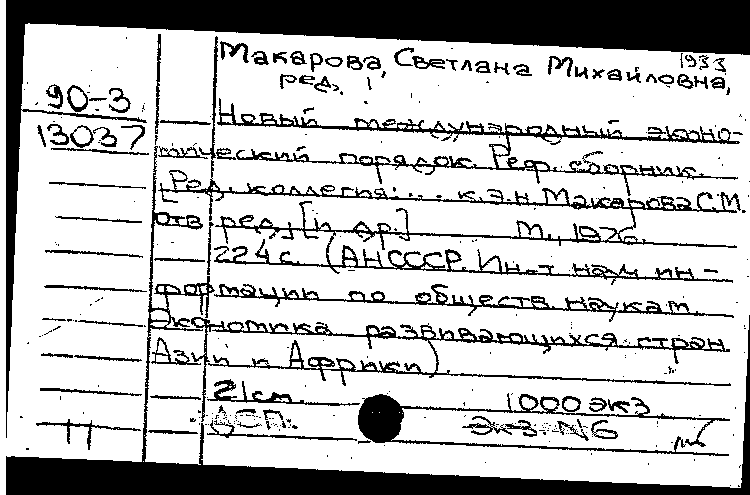 1933
Макарова, Светлана Михайловна,
ред.
90-3
13037
Новый международный эконо-
мический порядок. Реф. сборник.
[Ред. коллегия: ... к.э.н. Макарова С.М.
отв. ред.] [и др.] М., 1976.
224 с. (АН СССР. Ин-т науч. ин-
формации по обществ. наукам.
Экономика развивающихся стран
Азии и Африки).
21 см. 1000 экз.
ДСП. Экз. N6
11